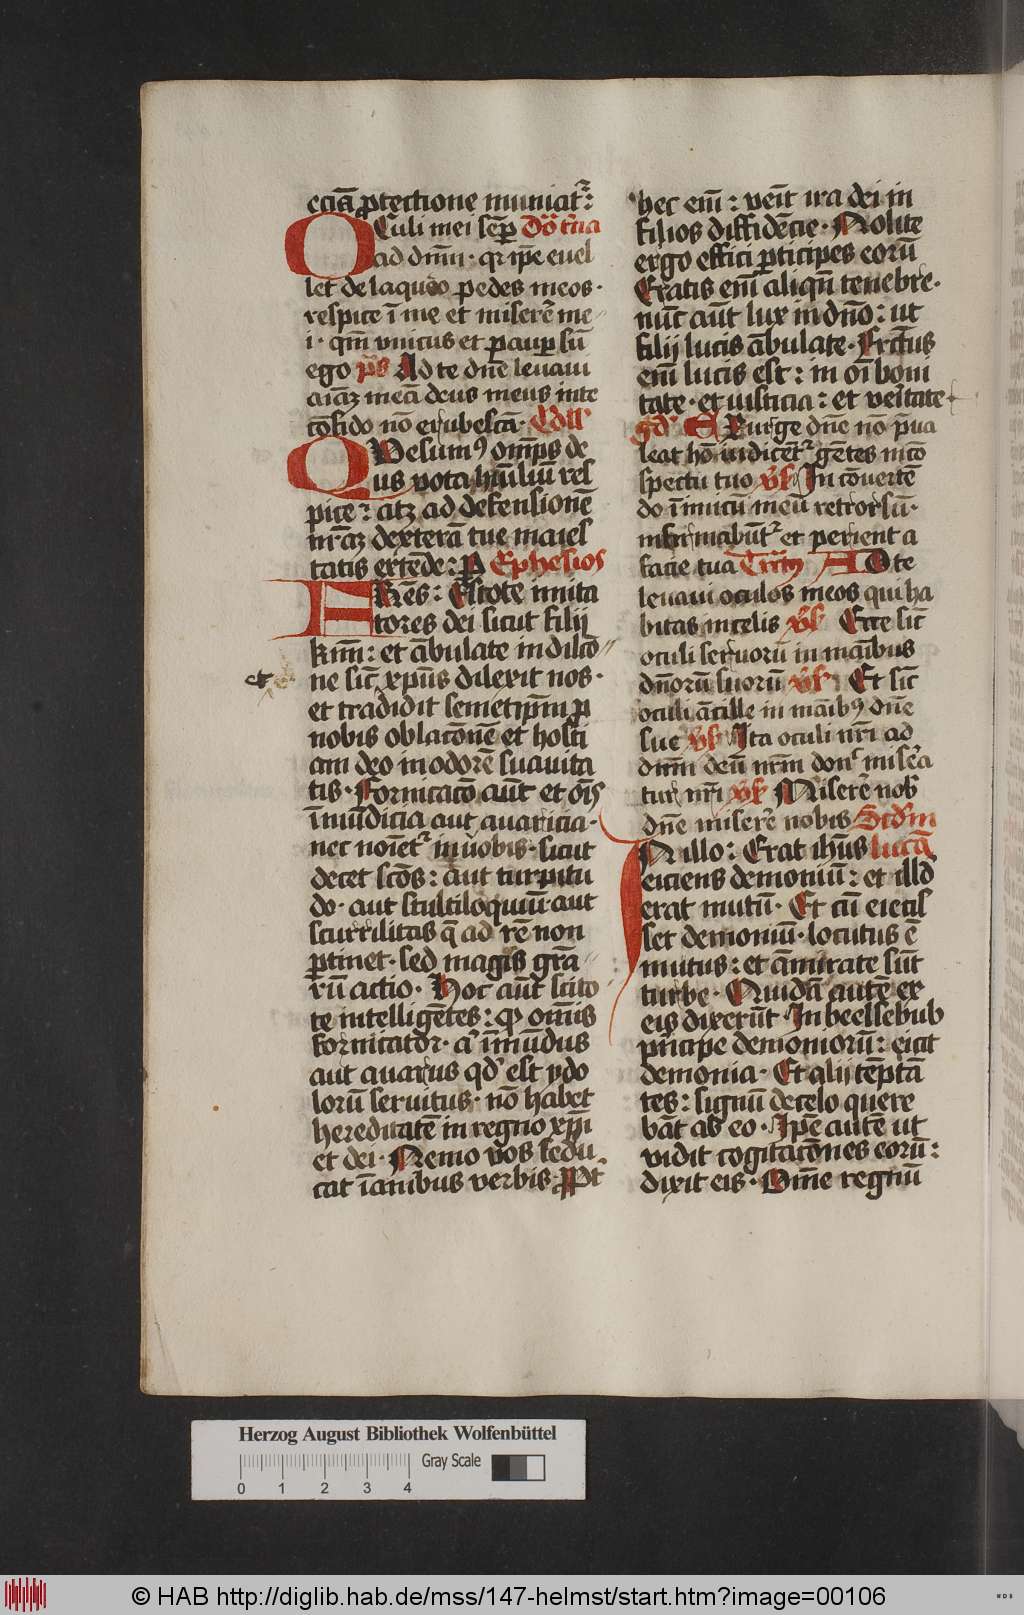 cciā ꝓtectione muniatᷣ:
OCuli mei sēꝑ Dō t̄cia
ad dnm̄· qr ip̄e euel
let de laqueo pedes meos·
respice ī me et miserē me
i· qm̄ vnicus et pauꝑ sū
ego p̄s Ad te dn̄e leuaui
aīaꝫ meā deus meus in te
cōfido nō erubescā· Coll
QVesumꝰ omp̄s de
us vota hūiliū res
pice: atꝫ ad defensionē
nr̄aꝫ dexterā tue maies
tatis extēde: ꝑ Ephesios
FRēs: Estote imita
tores dei sicut filij
kmī: et ābulate in dilcō
et ne sic̄ xp̄us dilexit nos·
et tradidit semetip̄m ꝓ
nobis oblacōnē et hosti
am deo in odorē suauita
tis· Fornicacō aūt et oīs
īmūdicia aut auaricia·
nec noīetᷣ in uobis· sicut
decet scōs: aut turpitu
do· aut stultiloquiū aut
scurrilitas q̄ ad rē non
ꝑtinet· sed magis grā
rū actio· Hoc aūt scito
te intelligētes: ꝙ om̄is
fornicator· aͭ īmūdus
aut auarus qd̓ est ydo
lorū seruitus· nō habet
hereditatē in regno xp̄i
et dei· Nemo vos sedu
cat īanibus verbis· Ꝓpt
hec em̄: venit ira dei in
filios diffidēcie· Nolite
ergo effici ꝑticipes eorū
Eratis em̄ aliqn̄ tenebre·
nūc aūt lux in dn̄o: ut
filij lucis ābulate· Fructus
em̄ lucis est: in oī boni
tate· et iusticia: et veritate
gd̓ EXurge dn̄e nō p̄ua
leat hō iudicent᷑ gētes in cō
spectu tuo v̓s In cōuertē
do īimicū meū retrorsū·
infirmabūt᷑ et perient a
facie tua Tract᷒ AD te
leuaui oculos meos qui ha
bitas in celis v̓s Ecce sic̄
oculi seruorū in manibus
dn̄orū suorū v̓s Et sic̄
oculi ācille in māibꝰ dn̄e
sue v̓s Ita oculi nr̄i ad
dnm̄ deū nr̄m donͨ miserea
tur nr̄i v̓s Miserē nob̓
dn̄e miserē nobis Scdm̄
IN illo: Erat ihūs lucā
eiciens demoniū: et illd̓
erat mutū· Et cū eiecis
set demoniū· locutus ē
mutus: et āmirate sūt
turbe· Quidā autē ex
eis dixerūt In beelsebub
principe demoniorū: eicit
demonia· Et alij tēptā
tes: signū de celo quere
bāt ab eo· Ip̄e autē ut
vidit cogitacōnes eorū:
dixit eis· Om̄e regnū
Herzog August Bibliothek Wolfenbüttel
Gray Scale
0 1 2 3 4
© HAB http://diglib.hab.de/mss/147-helmst/start.htm?image=00106